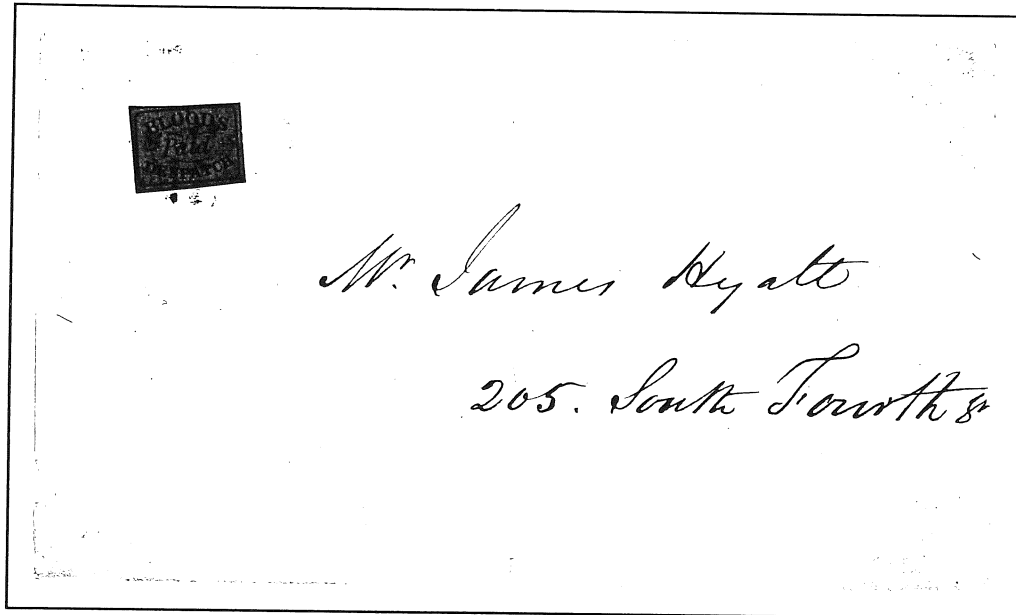 BLOOD'S
Paid
DESPATCH
Mr. James Hyatt
205. South Fourth St